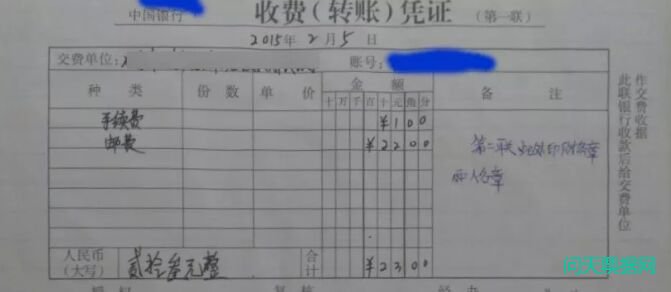 中国银行 收费（转账）凭证 （第一联）
2015年2月5日
交费单位: 账号:
种类 份数 单价 金额 备注
十万千百十元角分
手续费 ¥100
邮费 ¥2200
第二联
人名章
人民币（大写） 贰拾叁元整 合计 ¥2300
作交费收据
此联银行收款后给交费单位
问天票据网
复核